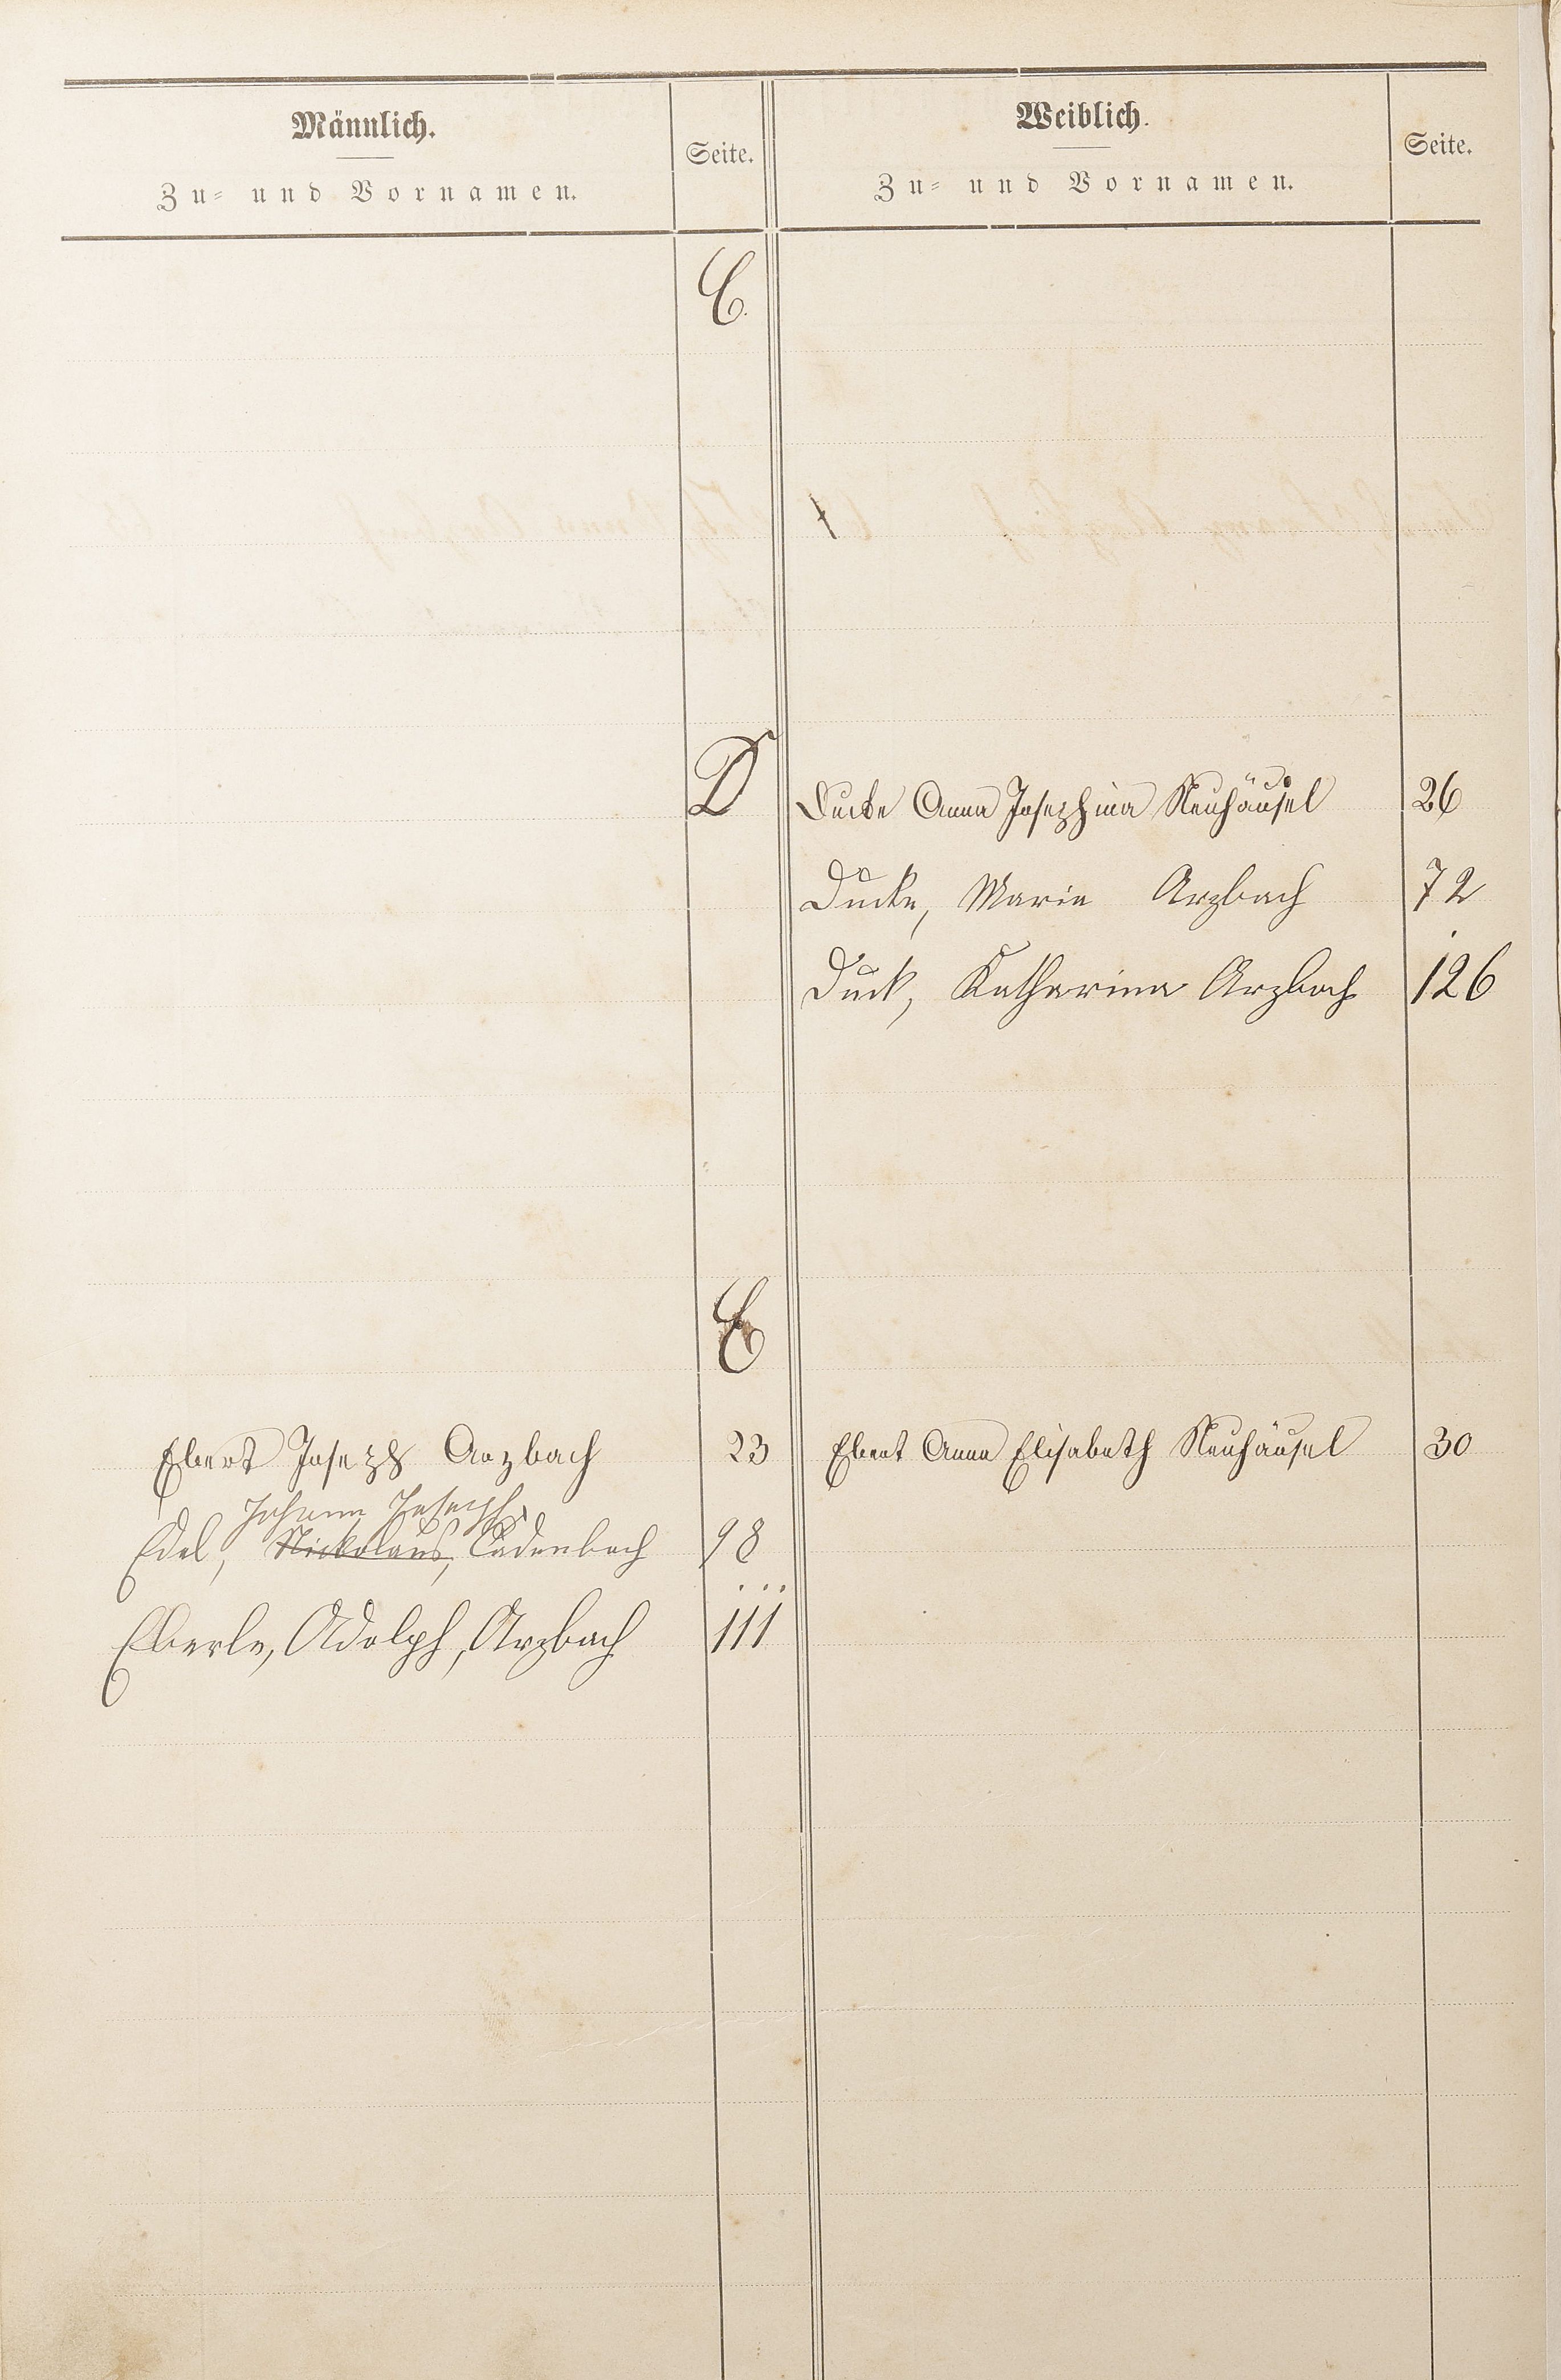 Männlich.
Zu- und Vornamen.
Seite.
Weiblich.
Zu- und Vornamen.
Seite.
C.
D
Ducke Anna Josephina Neuhäusel 26
Ducke, Maria Arzbach 72
Duck, Katharina Arzbach 126
E
Ebert Joseph Arzbach 23 Ebert Anna Elisabeth Neuhäusel 30
Johann Joseph
Edel, Nickolaus, Cadenbach 98
Eberle, Adolph, Arzbach 111